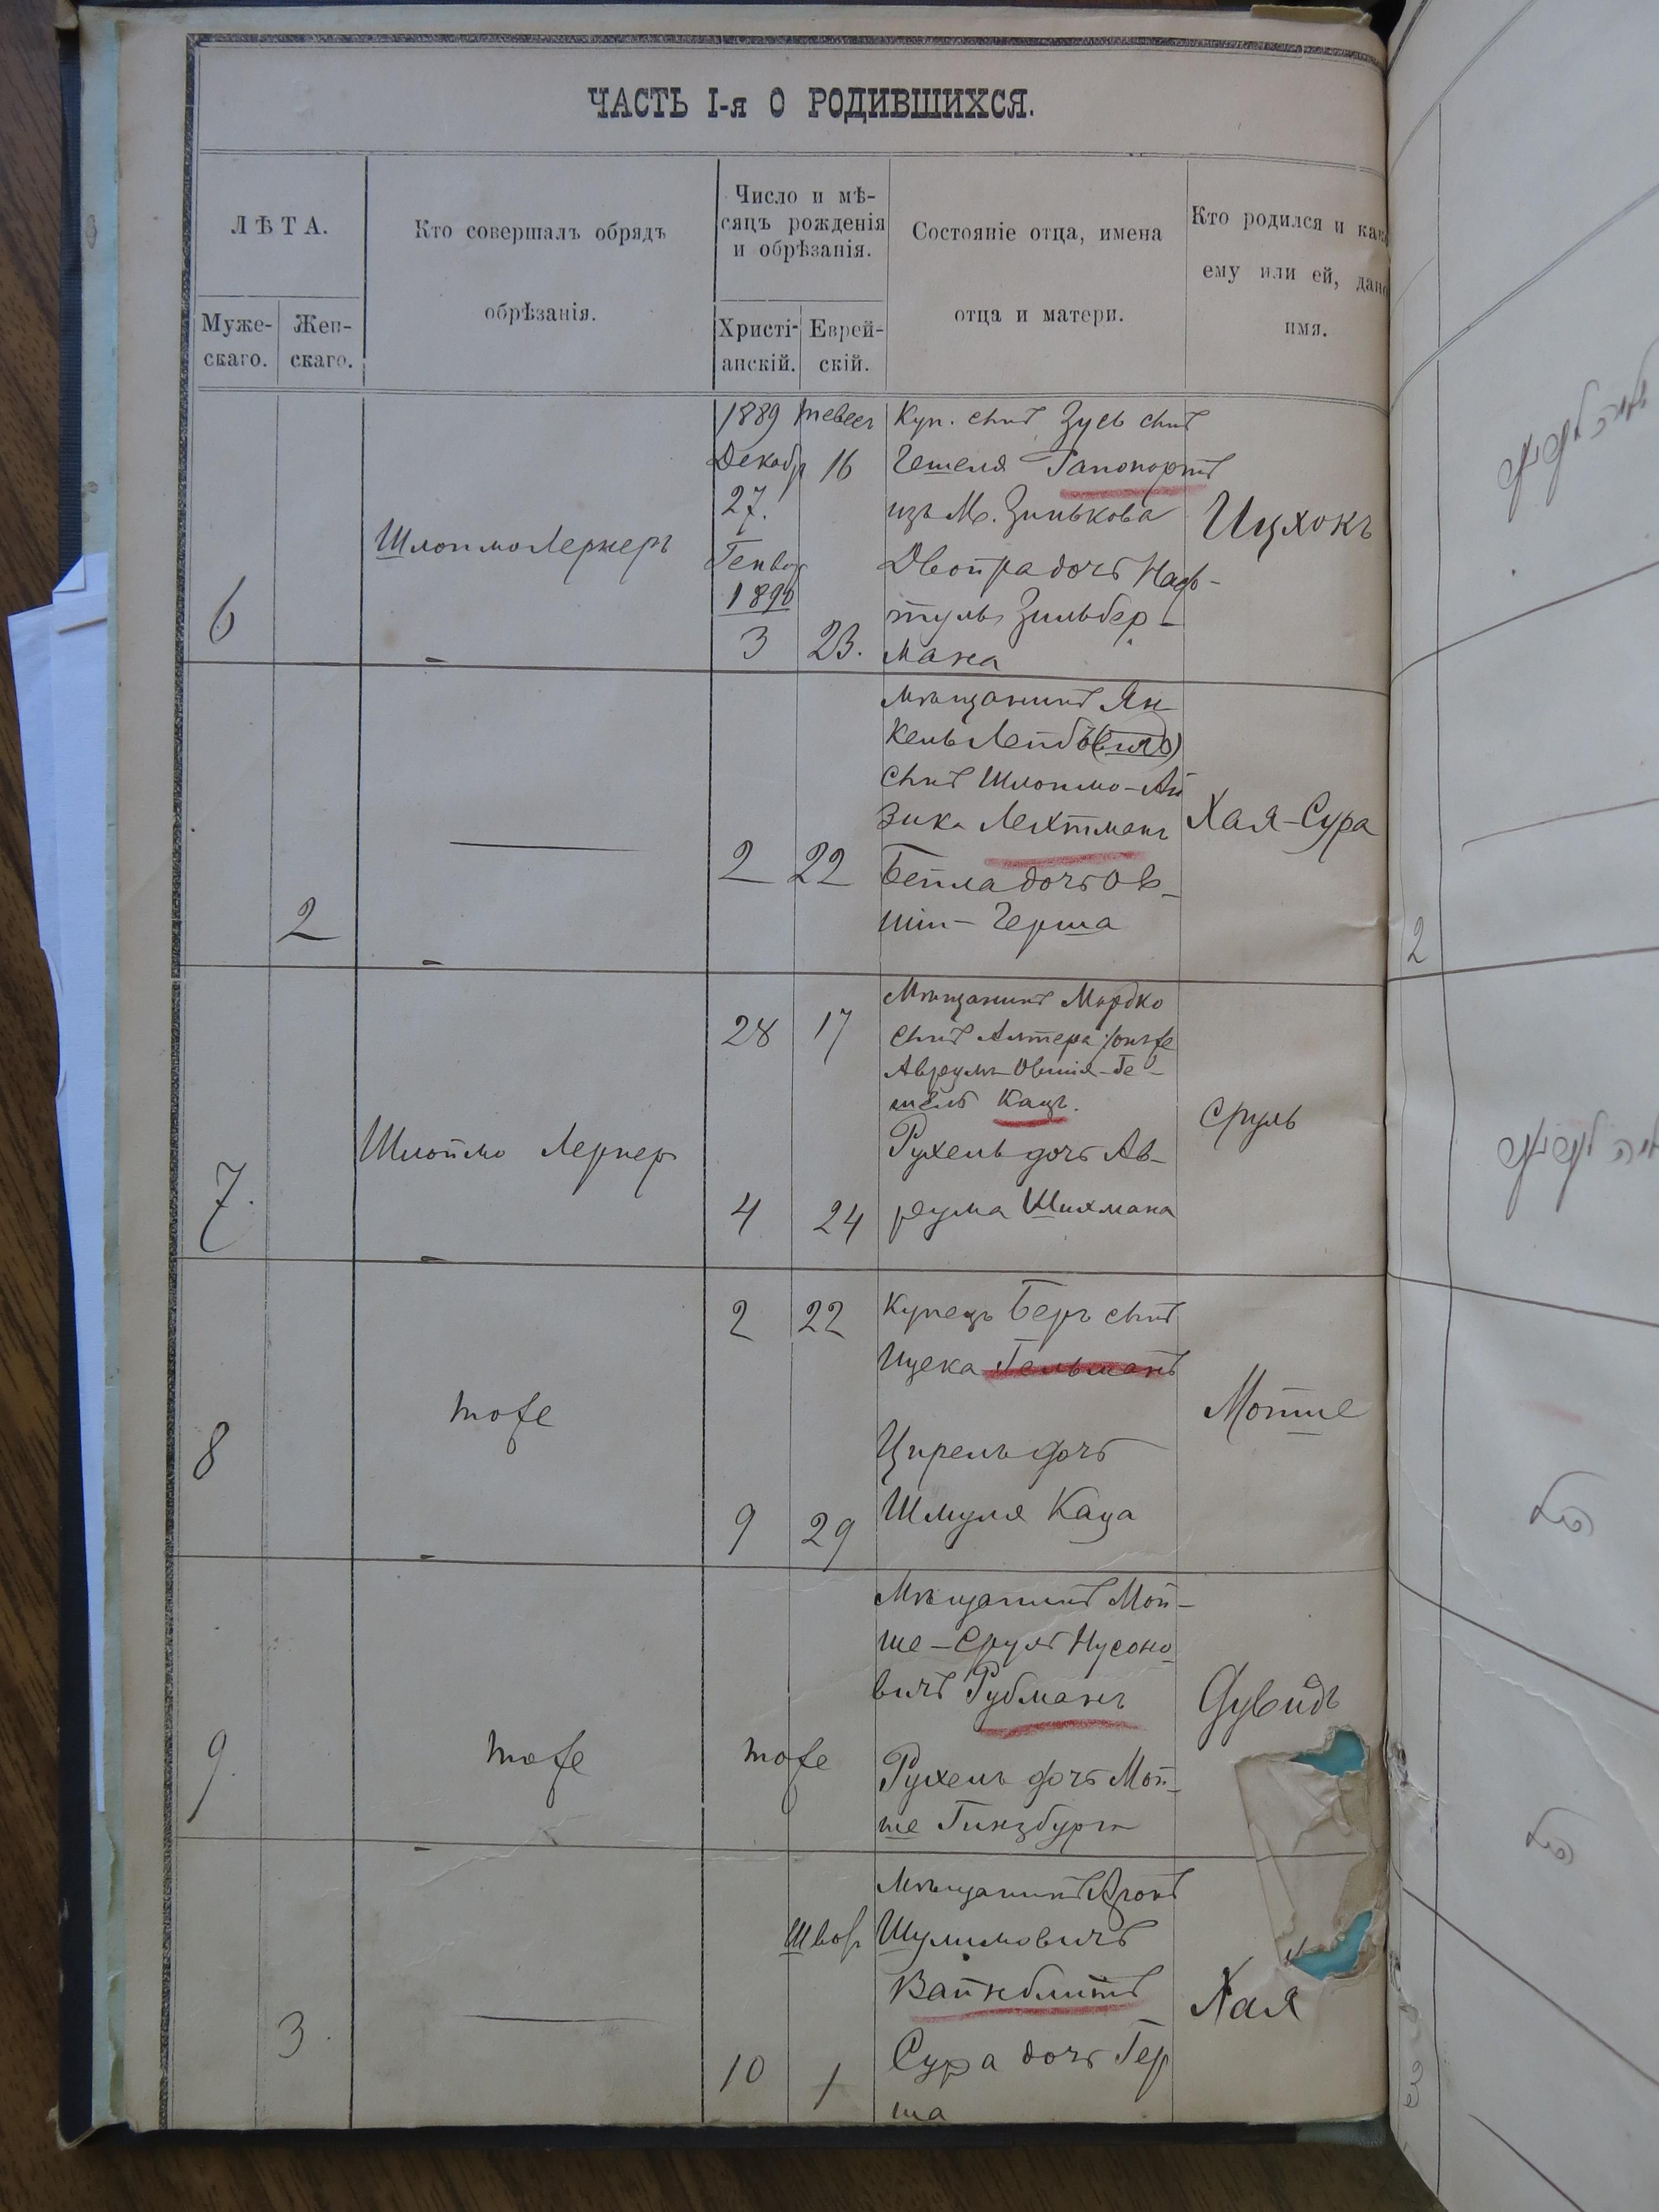 ЧАСТЬ I-я О РОДИВШИХСЯ.
ЛѢТА.
Муже-
скаго.
Жен-
скаго.
Кто совершалъ обрядъ
обрѣзанія.
Число и мѣ-
сяцъ рожденія
и обрѣзанія.
Христі-
анскій.
Еврей-
скій.
Состояніе отца, имена
отца и матери.
Кто родился и как
ему или ей, дано
имя.
6
Шлоимо Лернеръ
1889 Тевесъ
Декабр 16
27.
Генвар
1890
3 23.
Куп. сынъ Зусь сынъ
Гешеля Рапопортъ
изъ М. Зинькова
Двойра дочь Наф-
туль Зильбер-
мана
Ицхокъ
2
2 22
Мѣщанинъ Ян-
кель Лейбъ
сынъ Шлоимо-Ай
зика Лехтманъ
Бейла дочь Ов-
шiи-Герша
Хая-Сура
7.
Шлоймо Лернеръ
28 17
4 24
Мѣщанинъ Мордко
сынъ Алтера /онъ же
Аврумъ-Овшия-Ге-
шель Кацъ.
Рухель дочь Ав-
рума Шихмана
Сруль
8
тоже
2 22
9 29
Купецъ Беръ сынъ
Ицека Гельманъ
Цирель дочь
Шмуля Каца
Мотше
9.
тоже
тоже
Мѣщанинъ Мой-
ше-Сруль Нусоно-
вичъ Рубманъ
Рухель дочь Мой-
ше Гинзбургъ
Дувидъ
3.
Швор
10 1
Мѣщанинъ Аронъ
Шулимовичъ
Вайнблитъ
Сура дочь Гер
ша
Хая
2
3